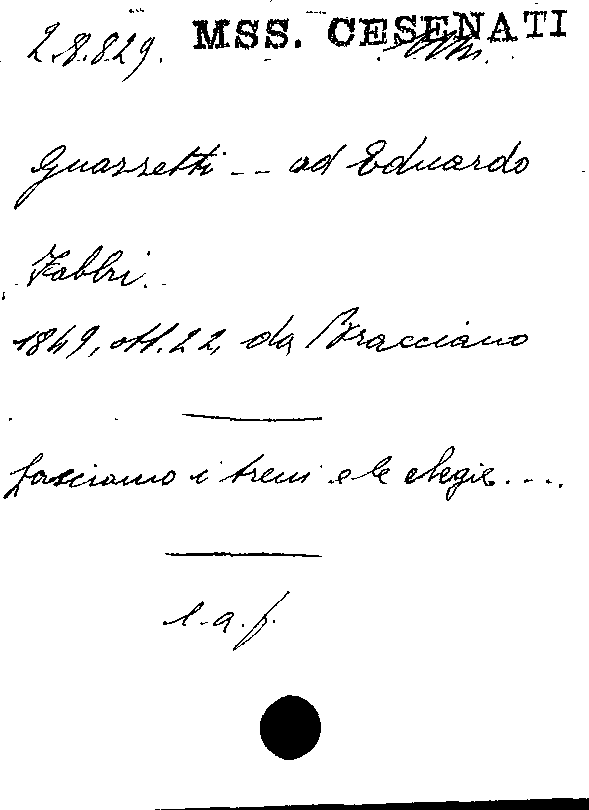 28.829. MSS. CESENATI
Guazzetti -- ad Eduardo
Fabbri.
1849, ott. 22, da Bracciano
Lasciamo i treni e le elegie....
l.a.f.